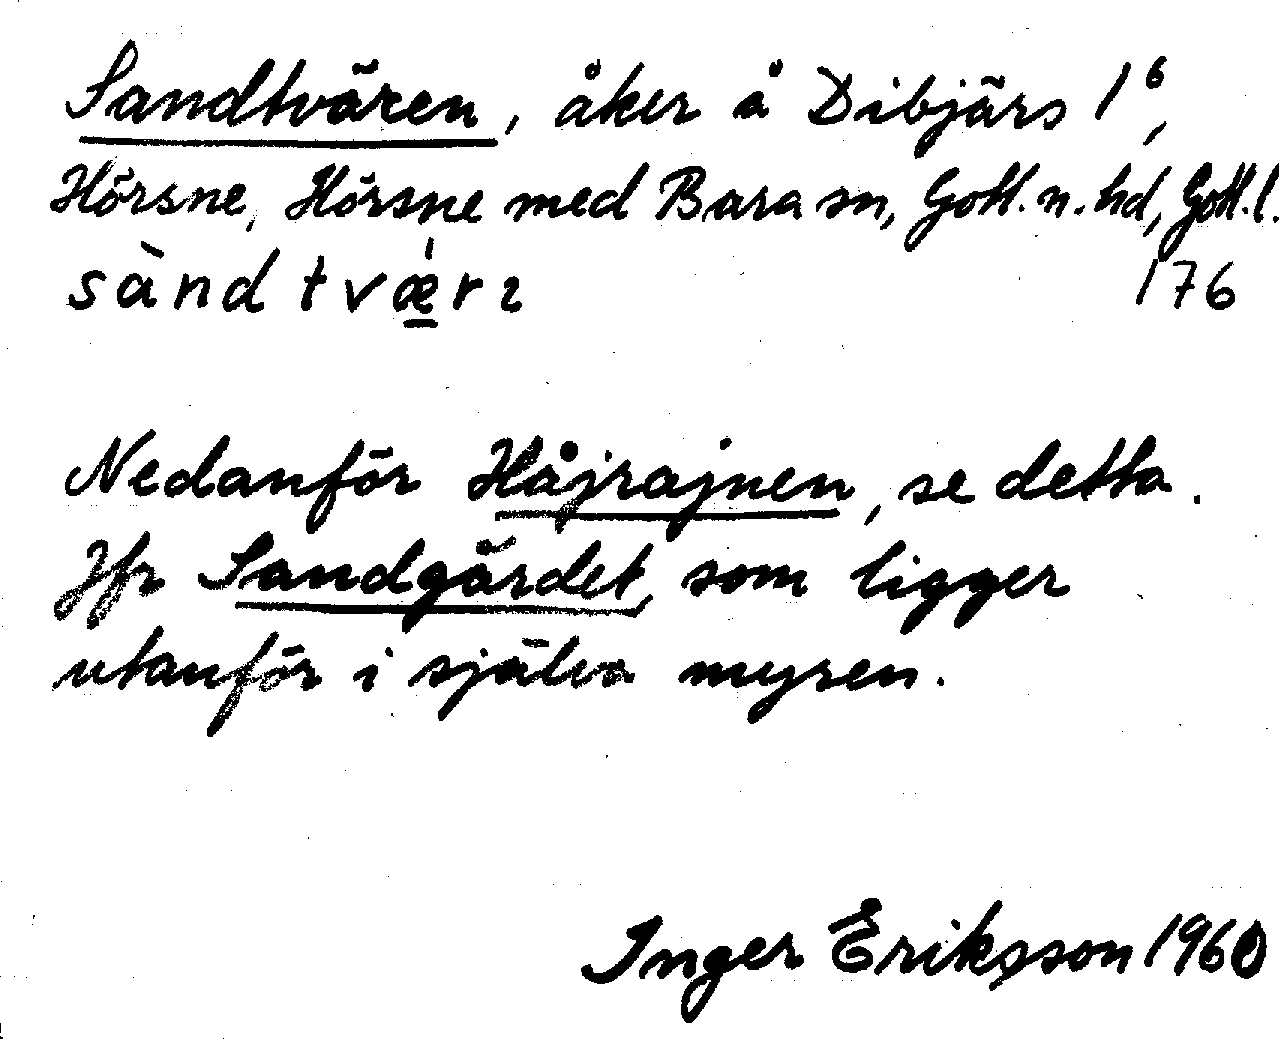 Sandtvären, åker å Dibjärs 1⁶,
Hörsne, Hörsne med Bara sn, Gotl. n. hd, Gotl. l.
sàndtvæ̲̍rɩ 176
Nedanför Håjrajnen, se detta.
Jfr Sandgärdet, som ligger
utanför i själva myren.
Inger Eriksson 1960